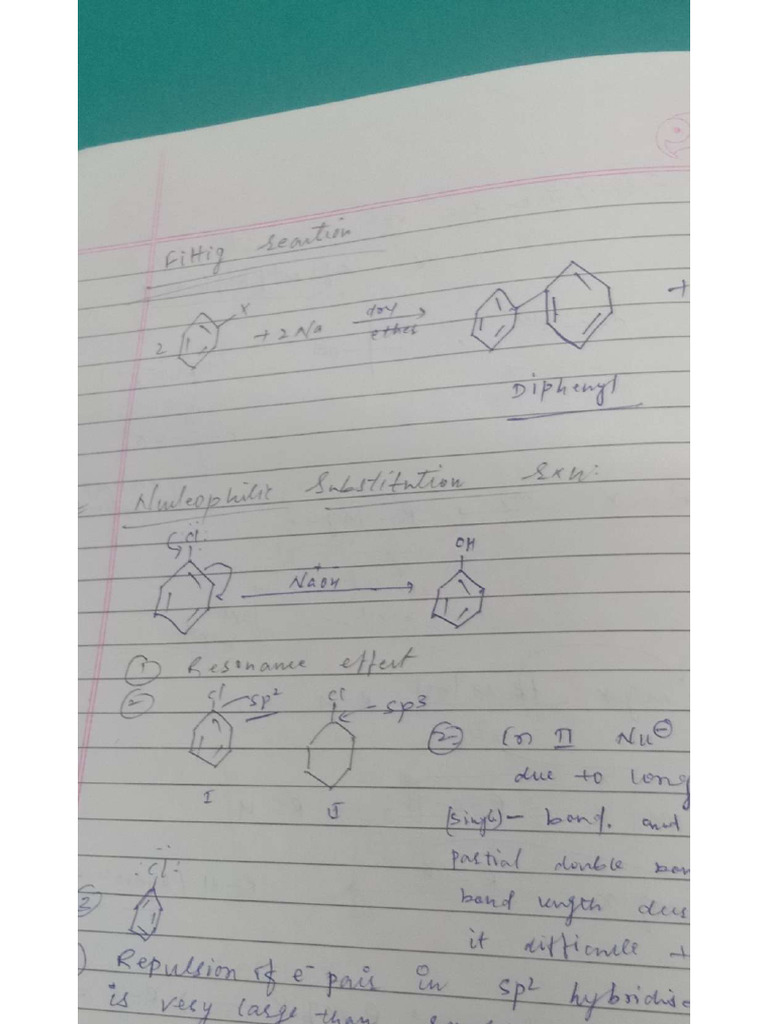 Fittig reaction
2 X + 2 Na dry ether +
Diphenyl
Nucleophilic Substitution rxn:
:Cl:
NaOH
OH
① Resonance effect
②
Cl sp²
Cl - sp3
I
II
② In II Nu⊖
due to long
(single) - bond. and
partial double bon
bond length dec
it difficult
③ :Cl:
Repulsion of e⁻ pair in sp² hybridis
is very large than